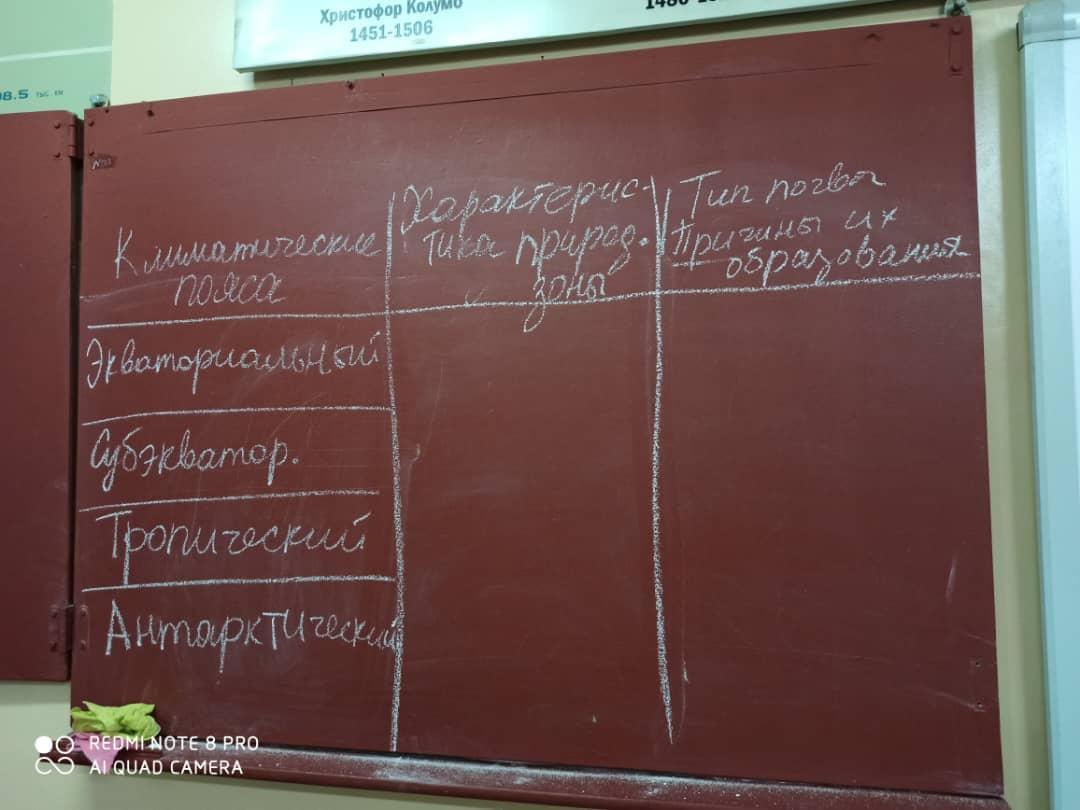 Христофор Колумб
1451-1506
98.5 тыс. км
Климатические
пояса
Характерис-
тика природ.
зоны
Тип почвы
Причины их
образования
Экваториальный
Субэкватор.
Тропический
Антарктический
REDMI NOTE 8 PRO
AI QUAD CAMERA